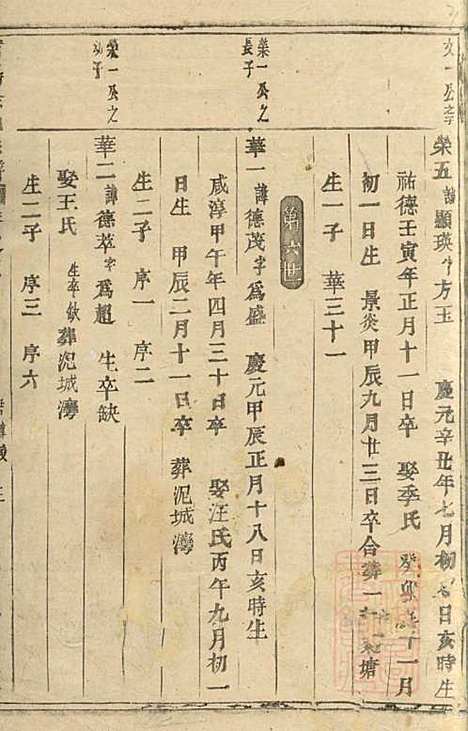 榮五 諱顯瑛字方玉 慶元辛丑年七月初 日亥時生
祐德壬寅年正月十一日卒 娶季氏 癸卯 十一月
初一日生 景炎甲辰九月廿三日卒合葬一 塘
生一子 華三十一
第六世
榮一公之
長子
華一 諱德茂字爲盛 慶元甲辰正月十八日亥時生
咸淳甲午年四月三十日卒 娶汪氏丙午九月初一
日生 甲辰二月十一日卒 葬泥城灣
生二子 序一 序二
榮一公之
幼子
華二 諱德萃字爲超 生卒缺
娶王氏 生卒缺 葬泥城灣
生二子 序三 序六